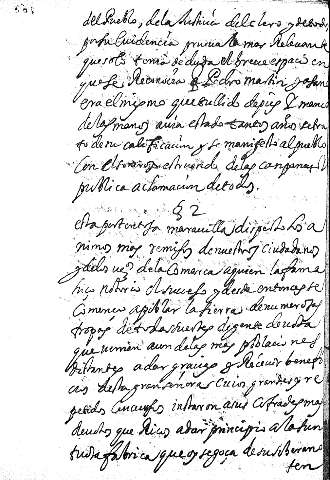 del Pueblo, de la Justicia del clero y de todos
por su evidencia prueva la mas Relevante
que solo tomo de duda el breve espacio en
que se Reconosia q Pedro martin
era el mismo que tullido de pies y manco
de las manos avia estado tantos años
to de su calificacion y se manifesto al pueblo
con el sonoro estruendo de las campanas
publica aclamacion de todos.
§ 2
esta portentosa maravilla dispuso los a
nimos mas remisos de nuestros ciudadanos
y de los vez.s de la comarca a quien la fama
hiço notorio el suceso y desde entonces se
començo a poblar la tierra de numerosas
tropas de toda suerte de gente devota
que venian aun de las mas poblaciones
distantes a dar gracias y Recevir benefi
cios desta gran señora cuios grandes y re
petidos concursos instaron a sus cofrades mas
devotos que Ricos a dar principio a la sun
tuosa fabrica que oy se goça de su
ten